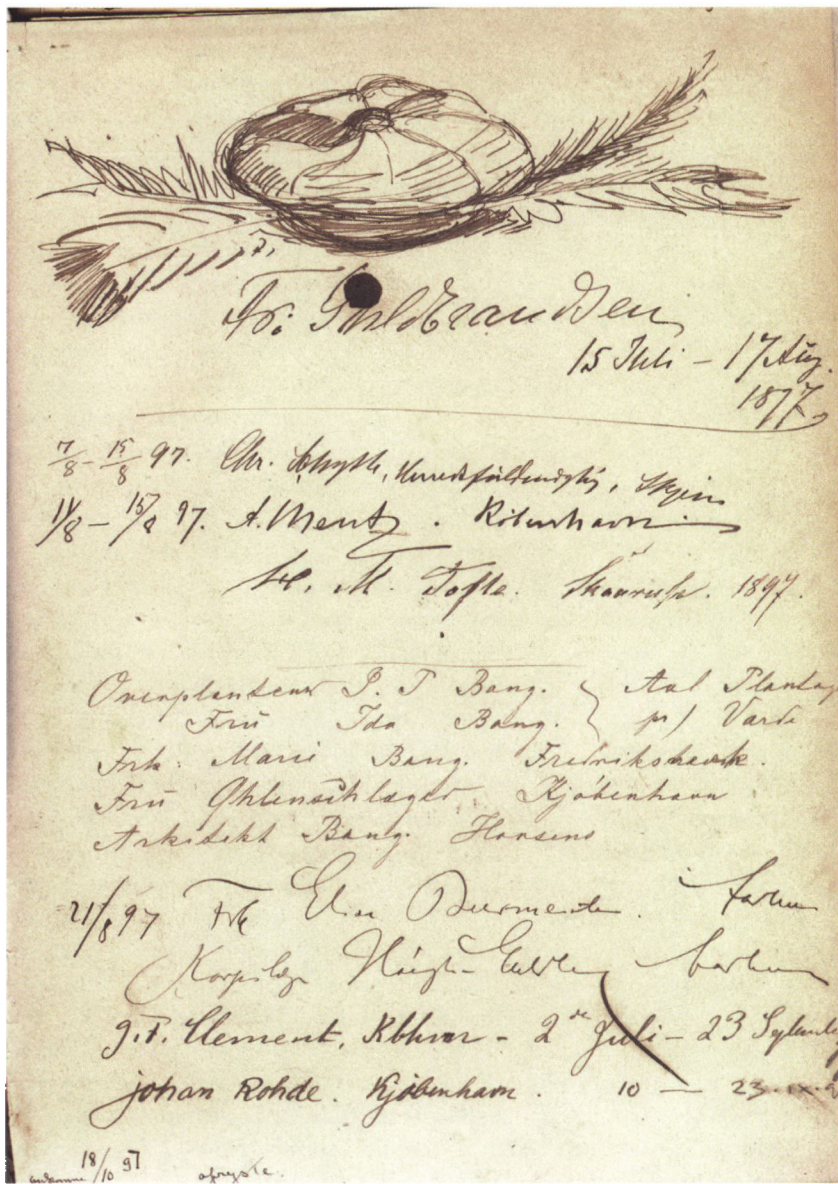 Fr: Guldbrandsen
15 Juli – 17 Aug.
1897
7/8 – 15/8 97. Chr. Skjern
11/8 – 15/8 97. A. Mentz. København
M. Tofte. 1897.
Overplanteur P. Bang. } Aal Plantag
Fru Ida Bang. } pr/ Varde
Frk. Marie Bang. Fredrikshavn.
Fru Øhlenschlæger Kjøbenhavn
Arkitekt Bang. Horsens
21/8 97 Frk Elise Aarhus
Aarhus
G.F. Clement, Kbhvn – 2de Juli – 23 Septemb
Johan Rohde. Kjøbenhavn. 10 — 23
ankomne 18/10 97 afrejste.